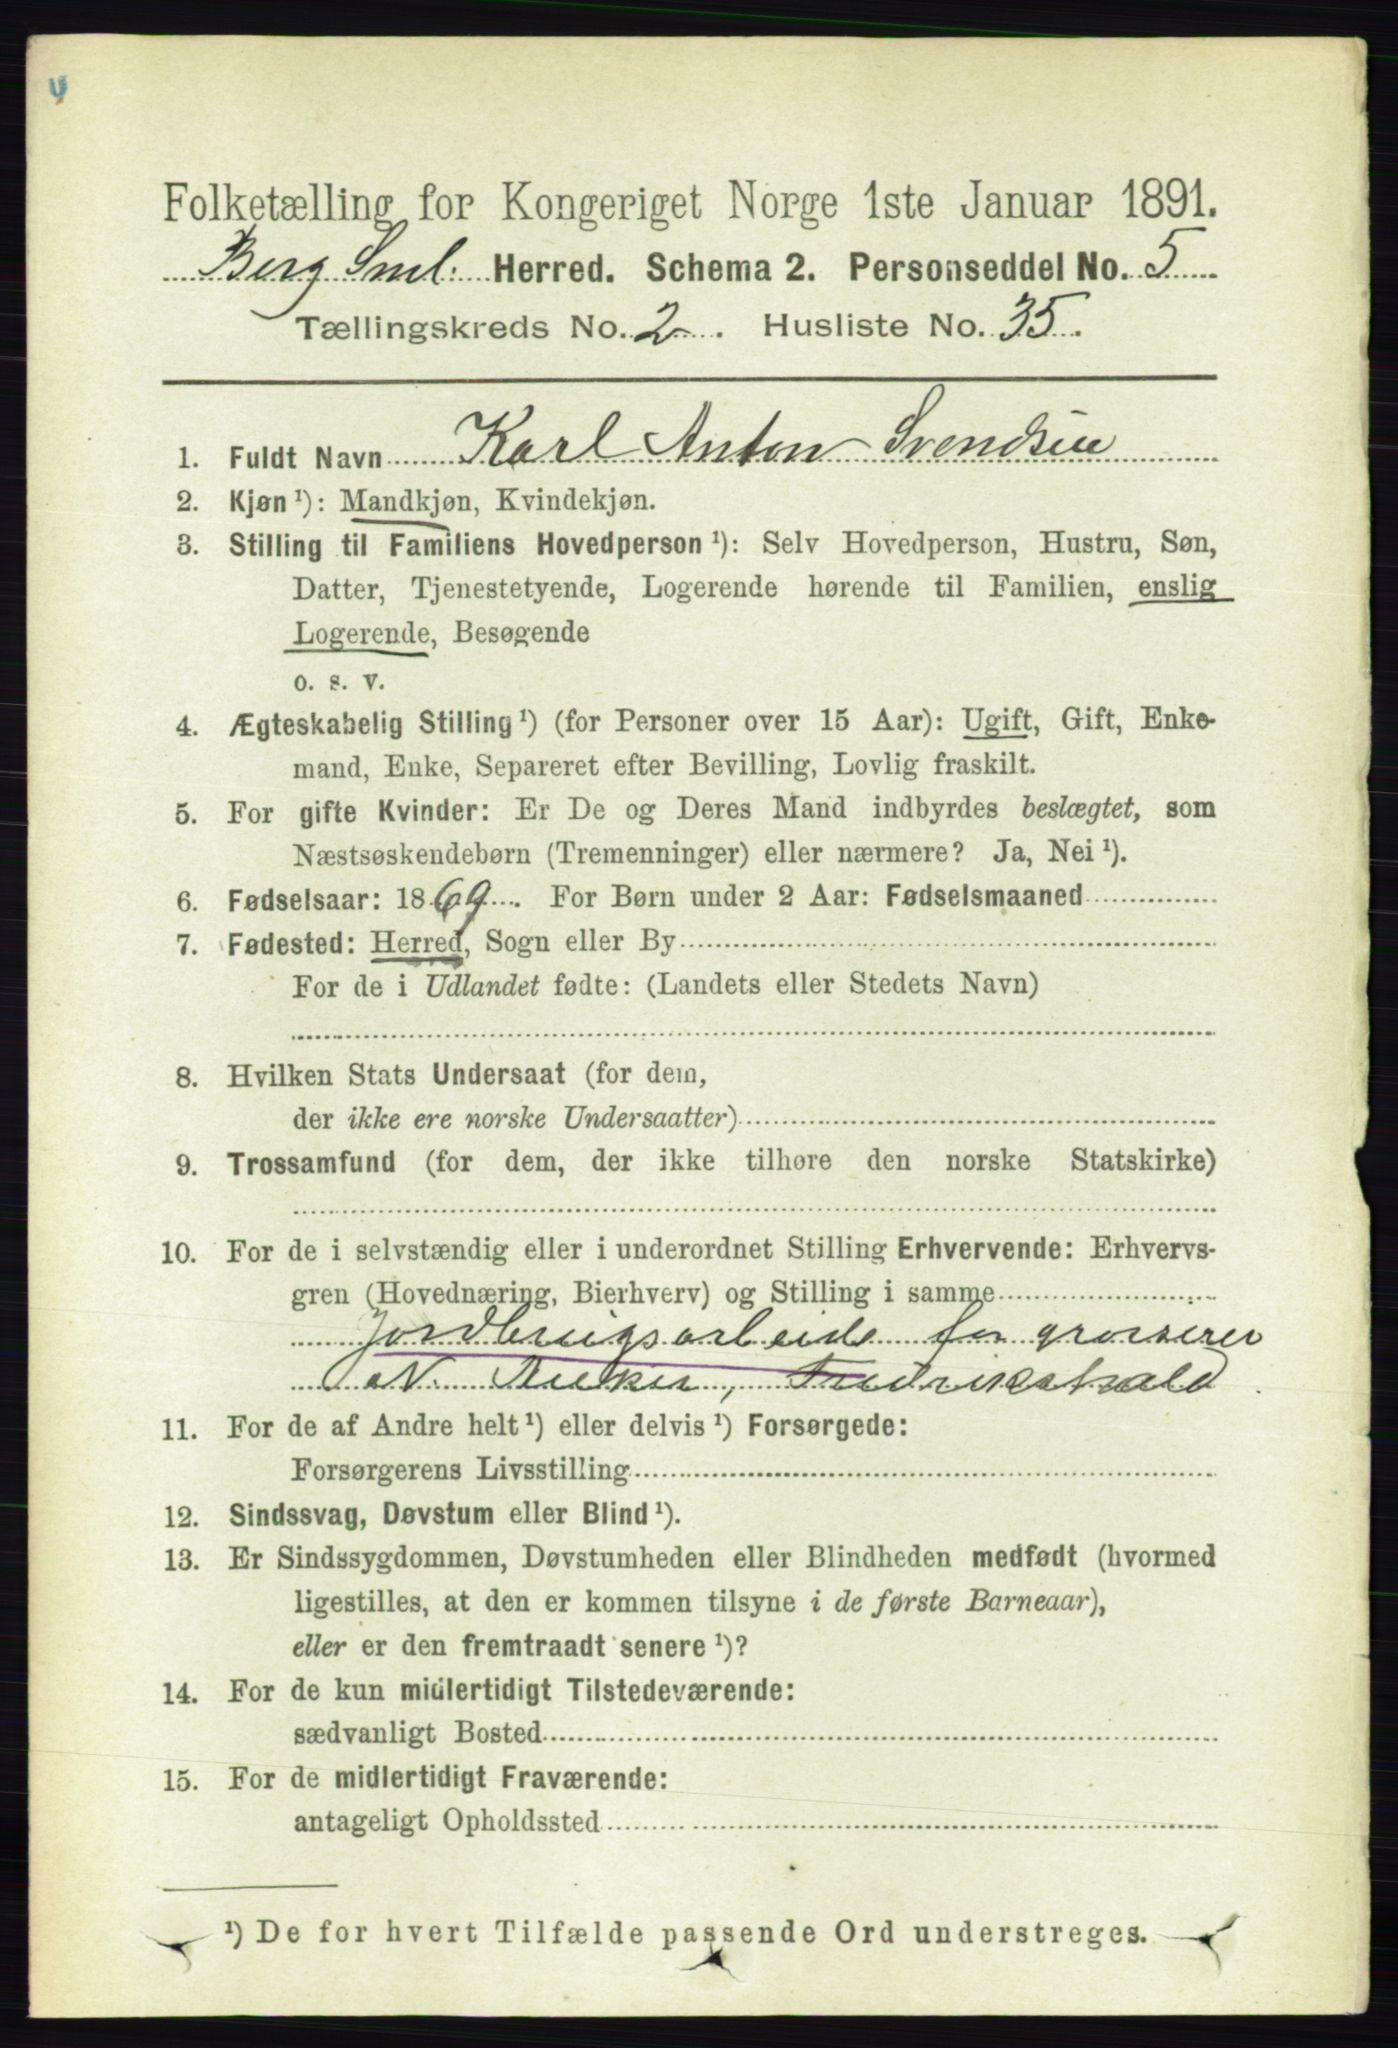 Folketælling for Kongeriget Norge 1ste Januar 1891.
Berg Sml. Herred. Schema 2. Personseddel No. 5
Tællingskreds No. 2. Husliste No. 35.
1. Fuldt Navn Karl Anton Svendsen
2. Kjøn ¹): Mandkjøn, Kvindekjøn.
3. Stilling til Familiens Hovedperson ¹): Selv Hovedperson, Hustru, Søn,
Datter, Tjenestetyende, Logerende hørende til Familien, enslig
Logerende, Besøgende
o. s. v.
4. Ægteskabelig Stilling ¹) (for Personer over 15 Aar): Ugift, Gift, Enke-
mand, Enke, Separeret efter Bevilling, Lovlig fraskilt.
5. For gifte Kvinder: Er De og Deres Mand indbyrdes beslægtet, som
Næstsøskendebørn (Tremenninger) eller nærmere? Ja, Nei ¹).
6. Fødselsaar: 1869. For Børn under 2 Aar: Fødselsmaaned
7. Fødested: Herred, Sogn eller By
For de i Udlandet fødte: (Landets eller Stedets Navn)
8. Hvilken Stats Undersaat (for dem,
der ikke ere norske Undersaatter)
9. Trossamfund (for dem, der ikke tilhøre den norske Statskirke)
10. For de i selvstændig eller i underordnet Stilling Erhvervende: Erhvervs-
gren (Hovednæring, Bierhverv) og Stilling i samme
Jordbrugsarbeide for grosserer
N. , Fredrikshald
11. For de af Andre helt ¹) eller delvis ¹) Forsørgede:
Forsørgerens Livsstilling
12. Sindssvag, Døvstum eller Blind ¹).
13. Er Sindssygdommen, Døvstumheden eller Blindheden medfødt (hvormed
ligestilles, at den er kommen tilsyne i de første Barneaar),
eller er den fremtraadt senere ¹)?
14. For de kun midlertidigt Tilstedeværende:
sædvanligt Bosted
15. For de midlertidigt Fraværende:
antageligt Opholdssted
¹) De for hvert Tilfælde passende Ord understreges.